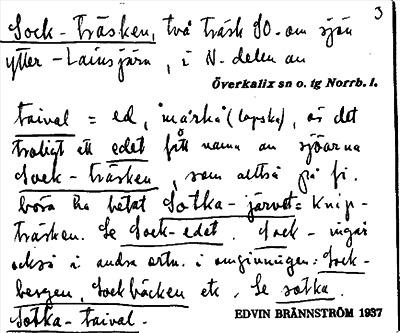 3
Sock-träsken, två träsk SO. om sjön
ytter-Lainsjärv, i N-delen av
Överkalix sn o. tg Norrb. l.
taival = ed, märkä (lapska), är det
troligt att edet fått namn av sjöarna
Sock-träsken, som alltså på fi.
böra ha hetat Sotka-järvet = Knip-
träsken. Se Sock-edet. Sock- ingår
också i andra ortn. i omgivningen: Sock-
bergen, Sockbäcken etc. Se sotka.
Sotka-taival.
EDVIN BRÄNNSTRÖM 1937